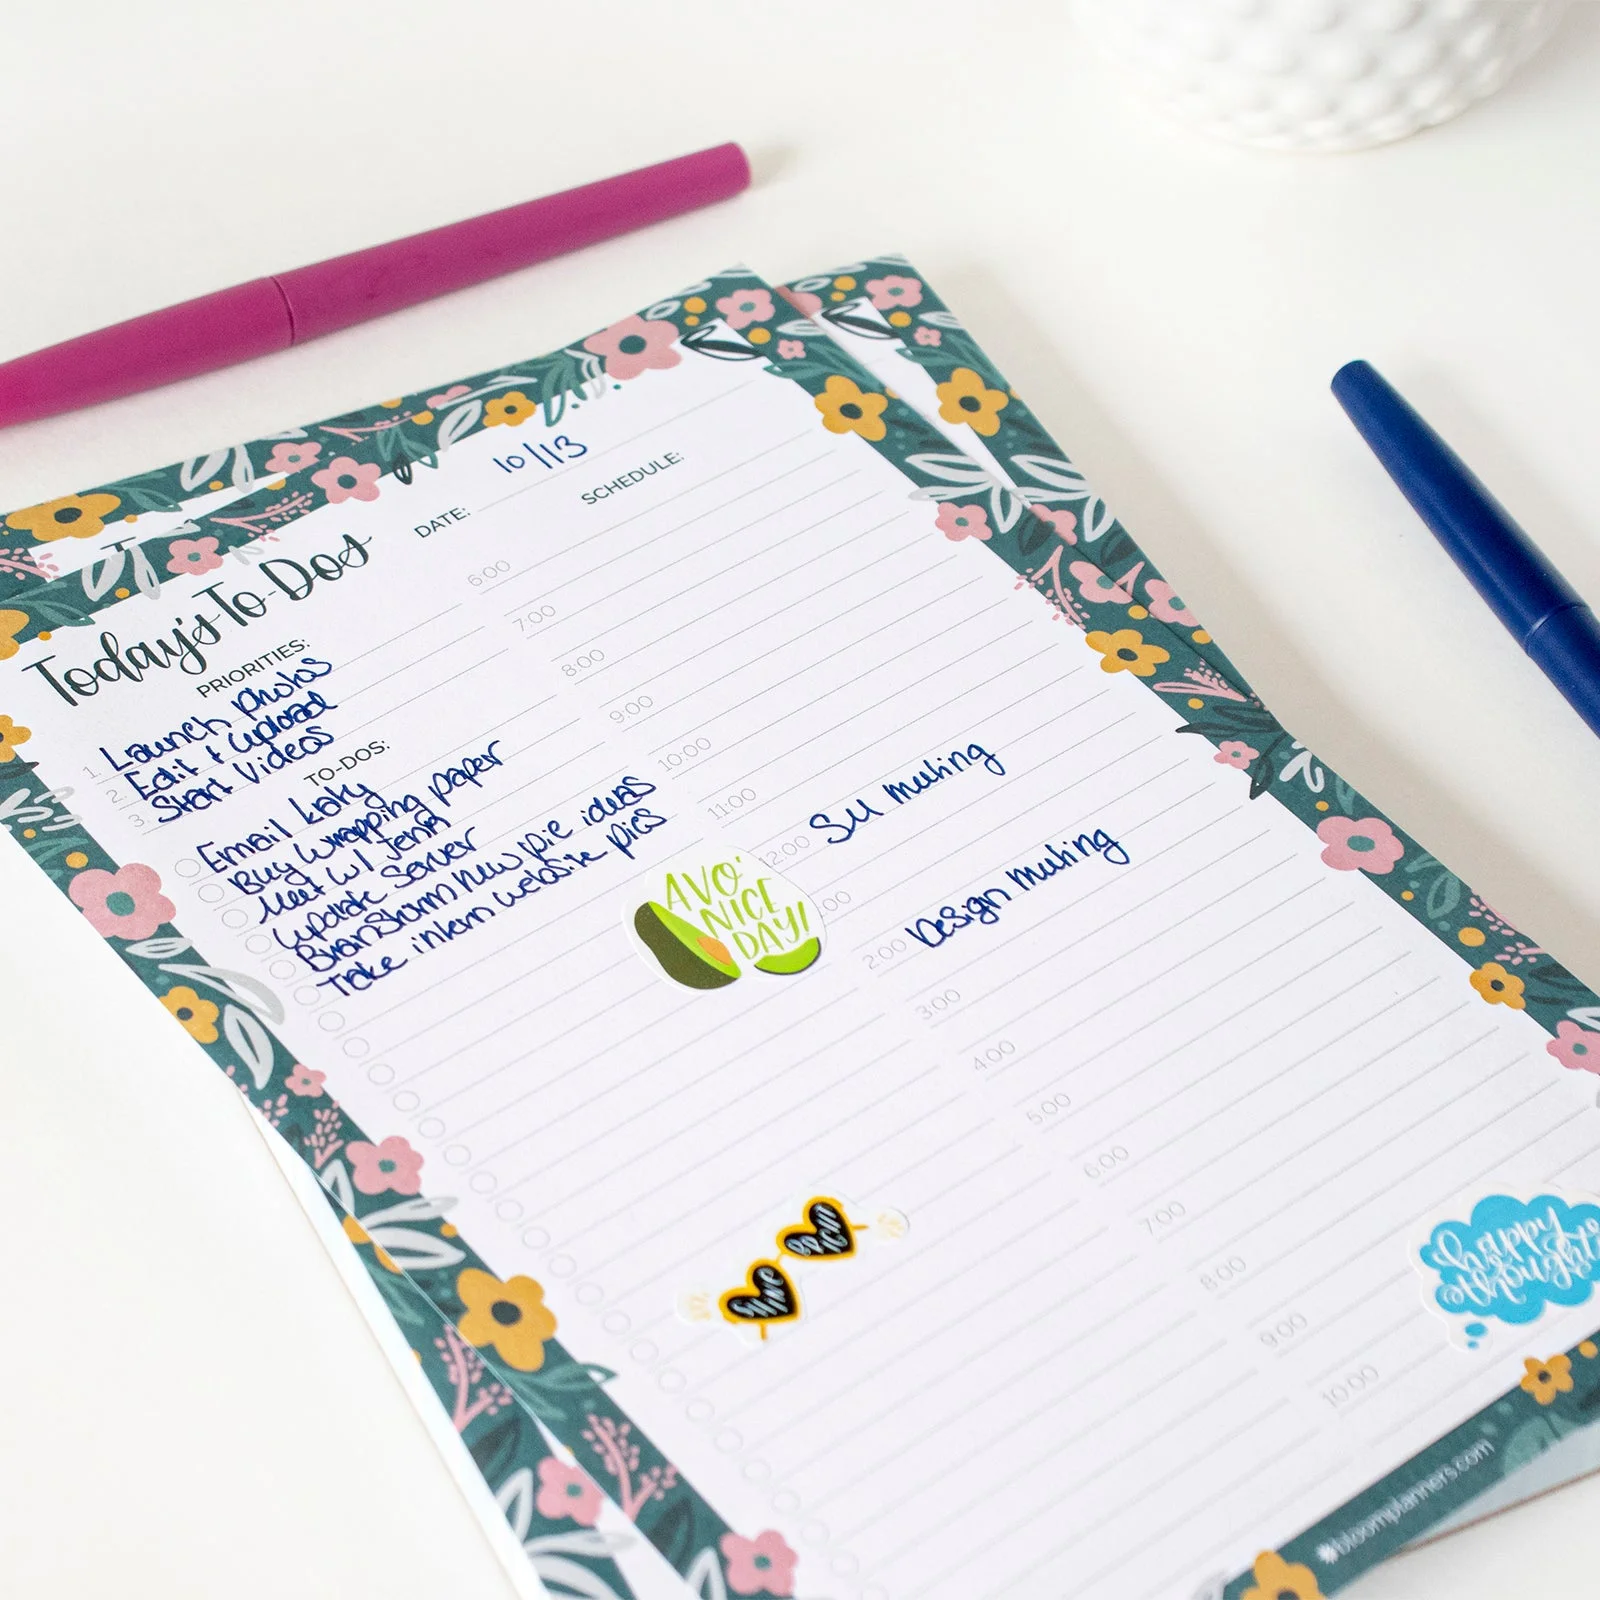 Today's To-Dos
DATE: 10/13
PRIORITIES:
1. Launch photos
2. Edit + upload
3. Start Videos
TO-DOS:
Email Katy
Buy wrapping paper
Meet w/ Jenn
Update Server
Brainstorm new pie ideas
Take intern website pics
SCHEDULE:
6:00
7:00
8:00
9:00
10:00
11:00
12:00 SU meeting
:00
2:00 Design meeting
3:00
4:00
5:00
6:00
7:00
8:00
9:00
10:00
AVO'
NICE
DAY!
happy
#bloomplanners.com